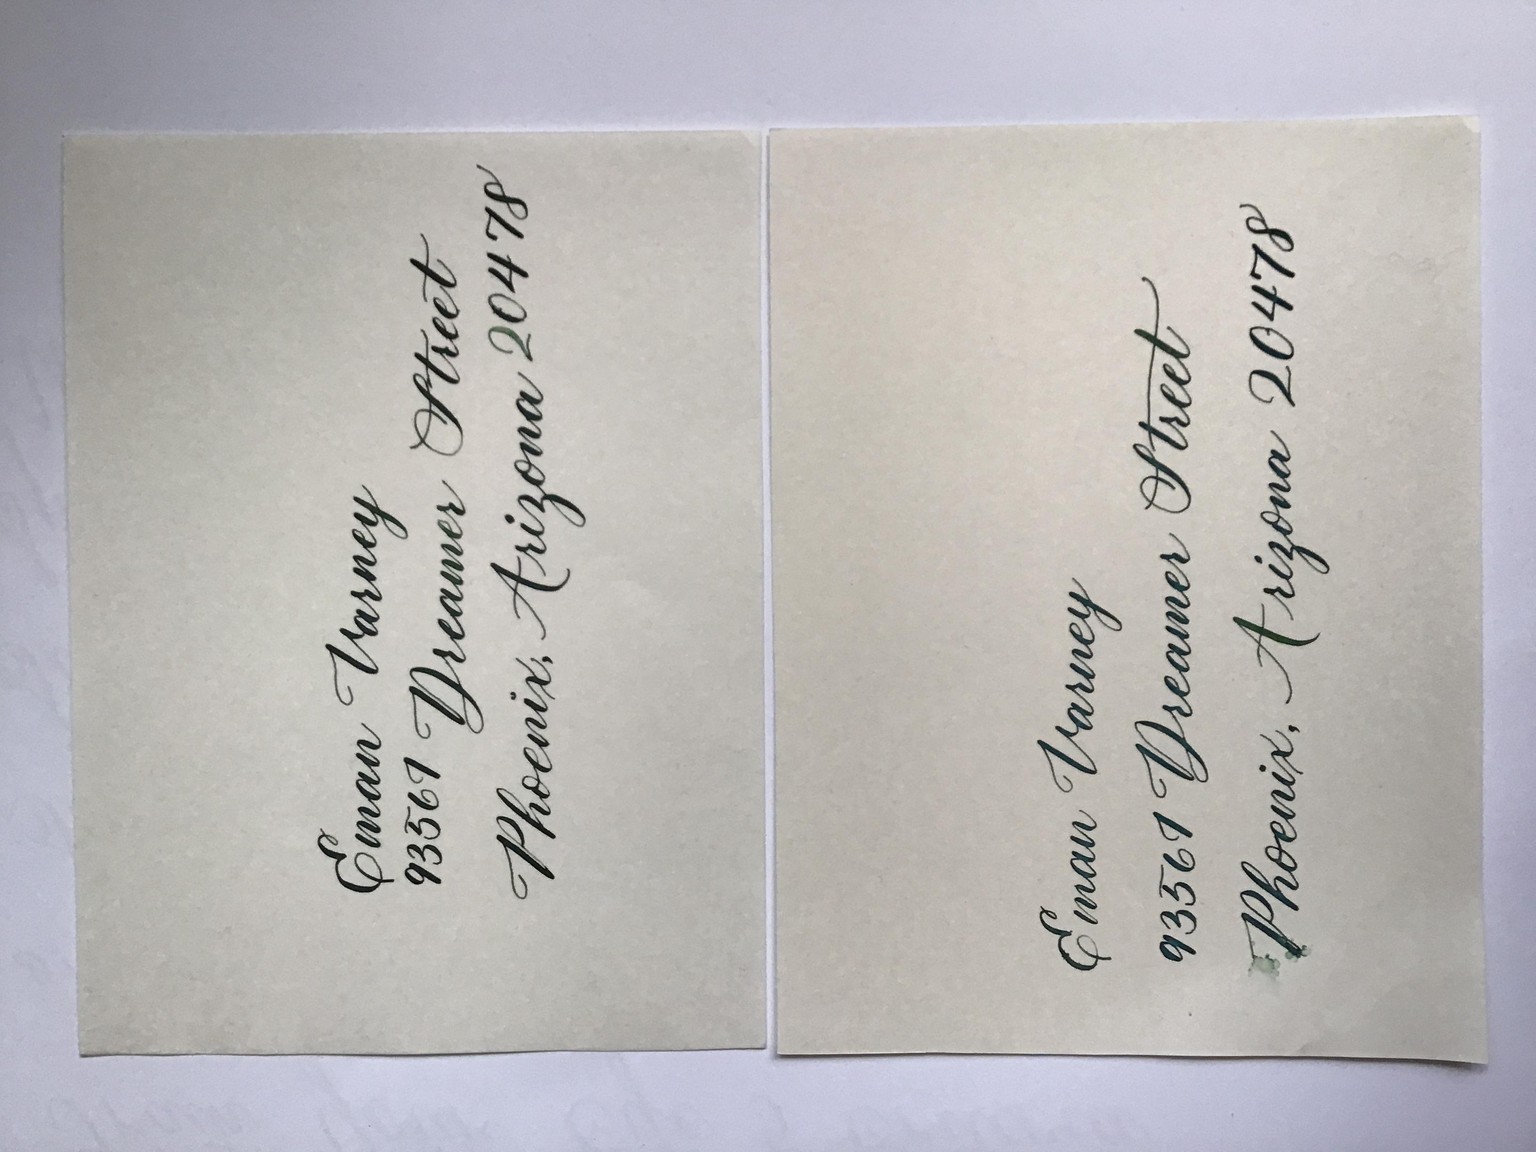 Eman Varney
93561 Dreamer Street
Phoenix, Arizona 20478
Eman Varney
93561 Dreamer Street
Phoenix, Arizona 20478